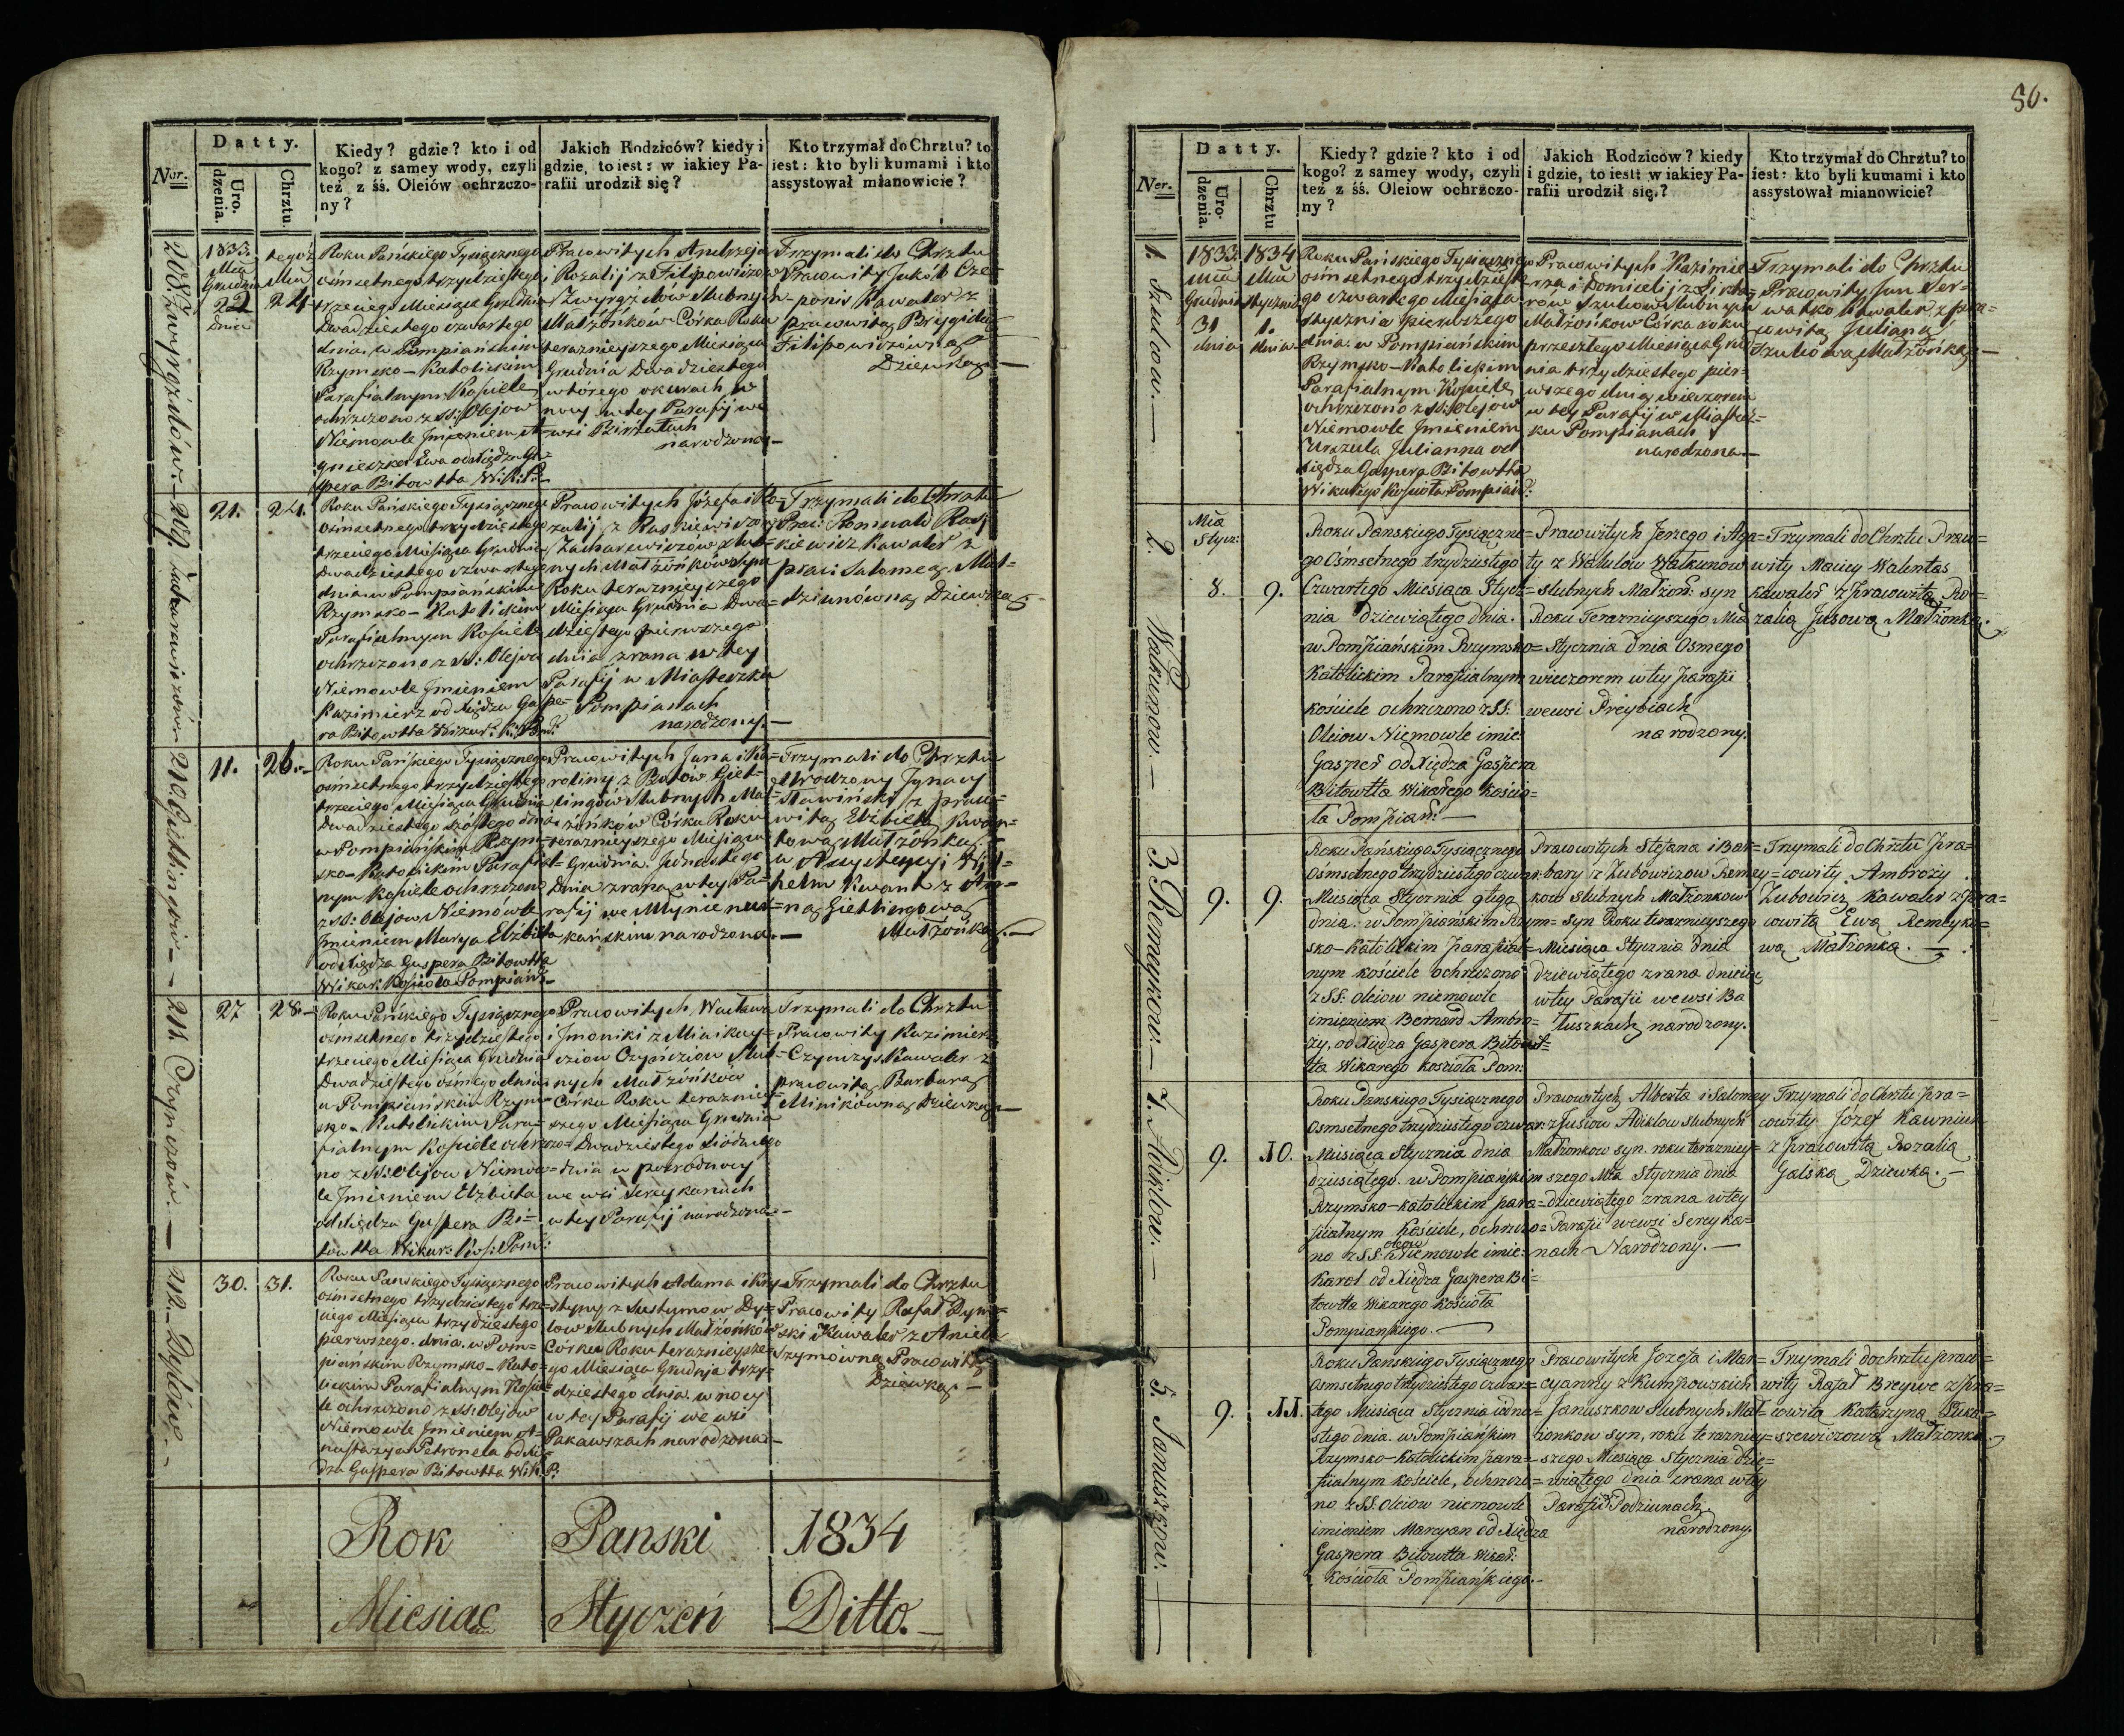 Ner.
Datty.
Uro.
dzenia.
Chrztu.
Kiedy? gdzie? kto i od
kogo? z samey wody, czyli
też z śś. Oleiów ochrzczo-
ny?
Jakich Rodziców? kiedy i
gdzie, to iest: w iakiey Pa-
rafii urodził się?
Kto trzymał do Chrztu? to
iest: kto byli kumami i kto
assystował mianowicie?
208.
1833.
Mca
Grudnia
22
dnia
tegoż
Mca
24.
Roku Pańskiego Tysiącznego
ośmsetnego trzydziestego
trzeciego Miesiąca Grudnia
Dwadziestego czwartego
dnia w Pompiańskim
Rzymsko-Katolickim
Parafialnym Kościele
ochrzczono z SS: Olejow
Niemowle Jmieniem A-
gnieszka Ewa od Xiędza Ga-
spera Bitowtta W: K: P:
Pracowitych Andrzeja
i Rozalij z Filipowiczow
Slubnych
Małżonków Córka Roku
terazniejszego Miesiąca
Grudnia Dwadziestego
wtórego
nocy w tey Parafij we
wsi Birżutach
narodzona.
Trzymali do Chrztu
Pracowity Jakób Cze-
ponis Kawaler z
pracowitą Brygidą
Filipowiczówną
Dziewką.
209. Zacharewiczów
21.
24.
Roku Pańskiego Tysiącznego
ośmsetnego trzydziestego
trzeciego Miesiąca Grudnia
Dwadziestego czwartego
dnia w Pompiańskim
Rzymsko-Katolickim
Parafialnym Kościele
ochrzczono z SS: Olejow
Niemowle Jmieniem
Kazimierz od Xiędza Gaspe-
ra Bitowtta Wikar: K: Pom:
Pracowitych Józefa i Ro-
zalij z Raskiewiczow
Zacharewiczów slub-
nych Małżonków syn
Roku terazniejszego
Miesiąca Grudnia Dwa-
dziestego pierwszego
dnia zrana w tey
Parafij w Miasteczku
Pompianach
narodzony.
Trzymali do Chrztu
Prac: Romuald Rasz
kiewicz Kawaler z
prac: Salomeą Mal-
dziunówną Dziewką
210. Giettingów
11.
26.
Roku Pańskiego Tysiącznego
ośmsetnego trzydziestego
trzeciego Miesiąca Grudnia
Dwadziestego szóstego dnia
w Pompiańskim Rzym-
sko-Katolickim Parafial-
nym Kościele ochrzczono
z SS: Olejow Niemówle
Jmieniem Marya Elżbieta
od Xiędza Gaspera Bitowtta
Wikar: Kościoła Pompiań:
Pracowitych Jana i Ka-
roliny z Butów Giet-
tingów slubnych Mał-
żonków Córka Roku
terazniejszego Miesiąca
Grudnia Jedenastego
Dnia zrana w tey Pa-
rafij we Młynie
narodzona.
Trzymali do Chrztu
Urodzony Jgnacy
Sławiński z praco-
witą Elżbietą Kwan-
tową Małżonką
w Assystencyi Wil-
helm Kwant z An-
ną Giettingową
Małżonką.
211. Czyńczów.
27
28.
Roku Pańskiego Tysiącznego
ośmsetnego trzydziestego
trzeciego Miesiąca Grudnia
Dwadziestego ósmego dnia
w Pompiańskim Rzym-
sko-Katolickim Para-
fialnym Kościele ochrzczo-
no z SS: Olejow Niemow-
le Jmieniem Elżbieta
od Xiędza Gaspera Bi-
towtta Wikar: Koś: Pom:
Pracowitych Wacława
Slub-
nych Małżonków
Córka Roku terazniey-
szego Miesiąca Grudnia
Dwadziestego siódmego
dnia w
we wsi Serejkanach
w tey Parafij narodzona.
Trzymali do Chrztu
Pracowity Kazimierz
Kawaler z
pracowitą Barbarą
Minikówną Dziewką
212.
30.
31.
Roku Panskiego Tysiącznego
ośmsetnego trzydziestego trze-
ciego Miesiąca trzydziestego
pierwszego dnia w Pom-
piańskim Rzymsko-Kato-
lickim Parafialnym Koście-
le ochrzczono z SS: Olejow
Niemowle Jmieniem A-
nastazya Petronela od Xię-
dza Gaspera Bitowtta Wik: P:
Pracowitych Adama i Kry-
styny z
slubnych Małżonków
Córka Roku terazniejsze-
go Miesiąca Grudnia trzy-
dziestego dnia w nocy
w tey Parafij we wsi
Pakawszach narodzona
Trzymali do Chrztu
Pracowity Rafał Dym-
ski Kawaler z Anielą
Szymówną Pracowitą
Dziewką.
Rok Panski 1834
Miesiac Styczeń Ditto.
50.
Ner.
Datty.
Uro-
dzenia.
Chrztu
Kiedy? gdzie? kto i od
kogo? z samey wody, czyli
też z śś. Oleiow ochrzczo-
ny?
Jakich Rodziców? kiedy
i gdzie, to iest: w iakiey Pa-
rafii urodził się?
Kto trzymał do Chrztu? to
iest: kto byli kumami i kto
assystował mianowicie?
1. Szulcow.
1833.
Mca
Grudnia
31
dnia
1834
Mca
Stycznia
1.
dnia
Roku Pańskiego Tysiącznego
ośmsetnego trzydzieste
go czwartego Miesiąca
stycznia pierwszego
dnia w Pompiańskim
Rzymsko-Katolickim
Parafialnym Kościele
ochrzczono z SS: Olejow
Niemowle Jmieniem
Urszula Julianna od
Xiędza Gaspera Bitowtta
Wikarego Kościoła Pompiań:
Pracowitych Kazimie-
rza i Domicelij z
Slubnych
Małżonkow Córka roku
przeszłego Miesiąca Gru
nia trzydziestego pier-
wszego dnia wieczorem
w tey Parafij w Miastecz-
ku Pompianach
narodzona.
Trzymali do Chrztu
Pracowity Jan Ser-
watko Kawaler z pra-
cowitą Julianą
Małżonką.
2. Walkunow.
Mca
Stycz:
8.
9.
Roku Panskiego Tysiączne-
go Ośmsetnego trzydziestego
Czwartego Miesiąca Stycz-
nia dziewiątego dnia.
w Pompiańskim Rzymsko-
Katolickim Parafialnym
kościele ochrzczono z SS:
Oleiow Niemowle imie:
Gasper od Xiędza Gaspera
Bitowtta Wikarego Kościo-
ła Pompiań:
Pracowitych Jerzego i Aga-
ty z Walulow Walkunow
slubnych Małżon: syn
Roku Terazniejszego Mca
Stycznia dnia Osmego
wieczorem w tey parafii
we wsi Preybiach
narodzony.
Trzymali do Chrztu Praco-
wity Maciey Walentas
kawaler z pracowitą Ro-
zalią Jusową Małżonką.
3. Remeykow.
9.
9.
Roku Pańskiego Tysiącznego
Ośmsetnego trzydziestego czwar:
Miesiąca Stycznia 9tego
dnia. w Pompiańskim Rzym-
sko-Katolickim parafial-
nym kościele ochrzczono
z SS: oleiow niemowle
imieniem Bernard Ambro-
ży, od Xiędza Gaspera Bitowt-
ta Wikarego kościoła Pom:
Pracowitych Stefana i Bar-
bary z Zubowiczow Remey-
kow slubnych Małżonkow
syn Roku terazniejszego
Miesiąca Stycznia dnia
dziewiątego zrana
w tey Parafii we wsi Ba
łuszkach narodzony.
Trzymali do Chrztu pra-
cowity Ambroży
Zubowicz Kawaler z pra-
cowitą Ewą Remeyko-
wą Małżonką.
4. Adiklow.
9.
10.
Roku Panskiego Tysiącznego
Osmsetnego trzydziestego czwar:
Miesiąca Stycznia dnia
dziesiątego. w Pompiańskim
Rzymsko-katolickim para-
fialnym Kościele, ochrzczo-
no z SS: oleiow Niemowle imie:
Karol od Xiędza Gaspera Bi-
towtta Wikarego Kościoła
Pompiańskiego.
Pracowitych Alberta i Salomey
z Jusiow Adiklow slubnych
Małżonkow syn. roku teraźniey-
szego Mca Stycznia dnia
dziewiątego zrana w tey
Parafii we wsi Sereyka-
nach Narodzony.
Trzymali do Chrztu pra-
cowity Józef Kawnius
z pracowitą Rozalią
Galską Dziewką.
5. Januszkow.
9.
11.
Roku Panskiego Tysiącznego
Osmsetnego trzydziestego czwar-
tego Miesiąca Stycznia iedna-
stego dnia. w Pompiańskim
Rzymsko-Katolickim para-
fialnym kościele, ochrzczo-
no z SS. oleiow niemowle
imieniem Marcyan od Xiędza
Gaspera Bitowtta Wikar:
Kościoła Pompiańskiego.
Pracowitych Jozefa i Mar-
cyanny z Kumpowskich
Januszkow slubnych Mał-
żonkow syn, roku teraźniey-
szego Miesiąca Stycznia dzie-
wiątego dnia zrana w tey
Parafii Podziunach
narodzony.
Trzymali do chrztu praco-
wity Rafał Breywe z pra-
cowitą Katarzyną Łuka-
szewiczową Małżonką.